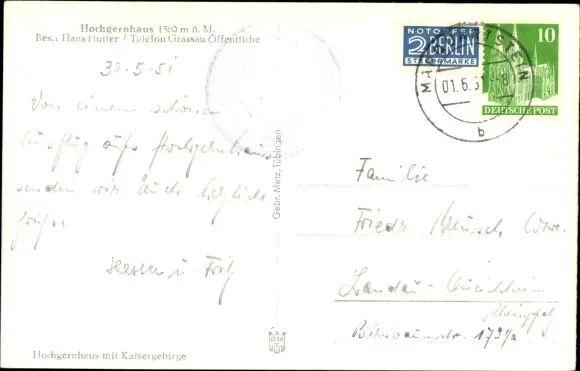 Hochgernhaus 1580 m ü. M.
Bes.: Hans Hutter / Telefon Grassau Öffentliche
30-5-51
Von einem schönen
Ausflug aufs Hochgernhaus
senden wir Euch herzliche
Grüße
u. Fritz
Hochgernhaus mit Kaisergebirge
Gebr. Metz, Tübingen
NOTOPFER
2 BERLIN
STEUERMARKE
10
DEUTSCHE POST
01.6.51
b
Familie
Friedr
Landau-Queichheim
Rheinpfalz
173 1/2